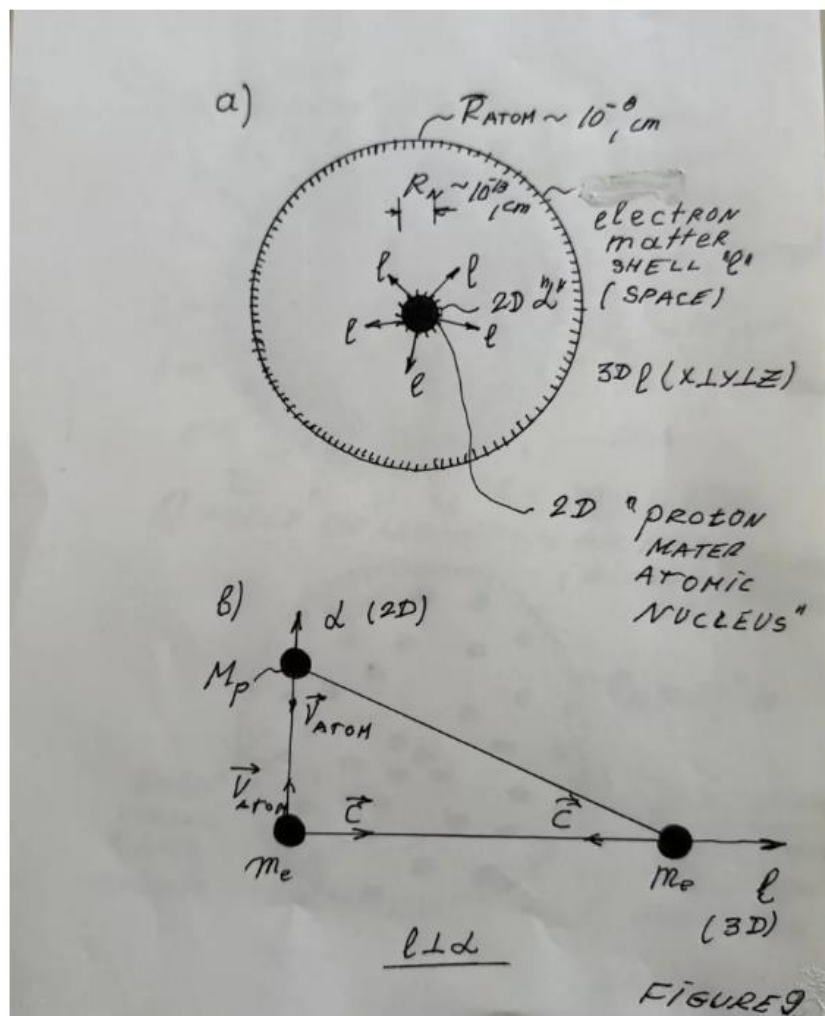 a)
R̄ATOM ~ 10⁻⁸, cm
RN ~ 10⁻¹³, cm
electron
matter
SHELL "ℓ"
(SPACE)
ℓ
ℓ
2D "α"
ℓ
ℓ
ℓ
3D ℓ (X⊥Y⊥Z)
2D "PROTON
MATER
ATOMIC
NUCLEUS"
в)
α (2D)
Mp
V⃗ATOM
V⃗ATOM
C⃗
C⃗
me
me
ℓ
(3D)
ℓ⊥α
FIGURE 9